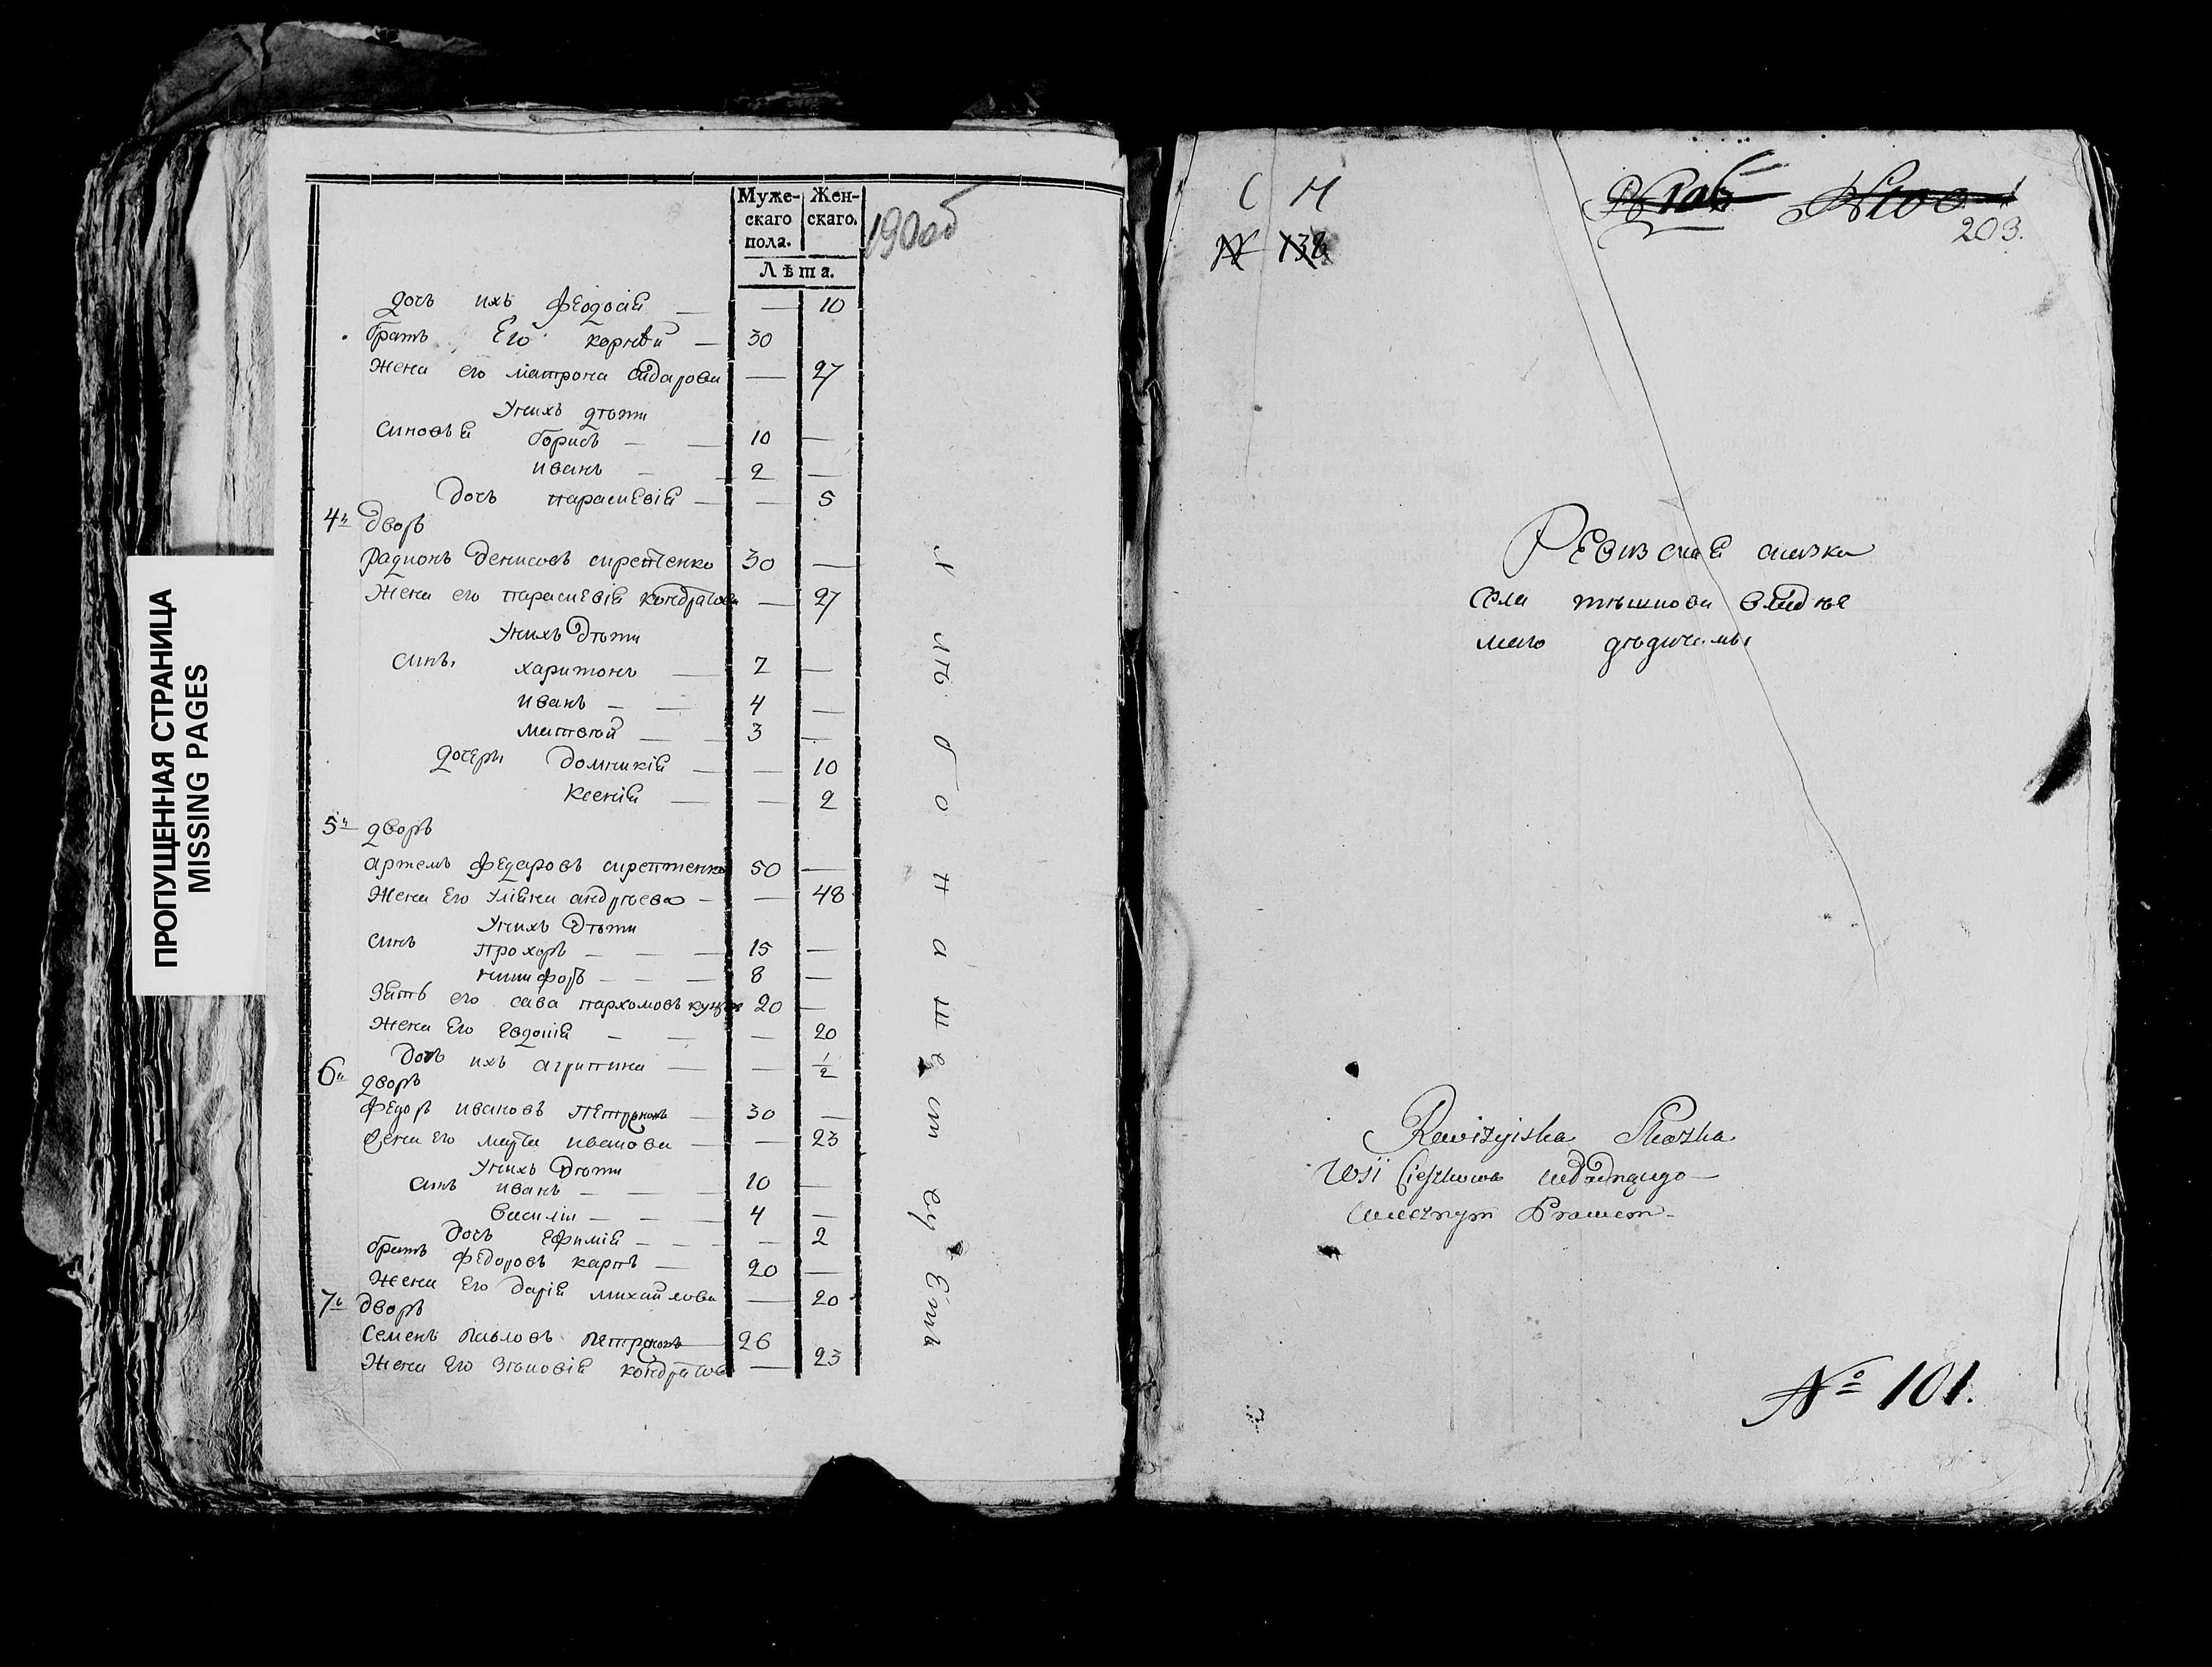 ПРОПУЩЕННАЯ СТРАНИЦА
MISSING PAGES
Муже- Жен-
скаго скаго.
пола.
Лѣта.
190об
дочъ ихъ феодосія — — 10
братъ Его корнѣй — 30
Жена его матрона сидарова — 27
Унихъ дѣти
синовъя борисъ — — 10 —
иванъ — 2 —
дочъ парасκевія — — 5
4й дворъ
радионъ денисовъ сиретенко 30 —
Жена его парасκевія кондратова — 27
Унихъ дѣти
синъ, харитонъ — 7 —
иванъ — — 4 —
матвѣй — — 3 —
дочери домникія — — 10
Ксенія — — 2
5й дворъ
артемъ федаровъ сиретенко 50 —
Жена Его Уліяна андрѣева — — 48
Унихъ дѣти
синъ прохоръ — — — 15 —
никифоръ — — — 8 —
Зять его сава пархомовъ 20 —
Жена Его Евдокія — — — 20
дочъ ихъ агрипина — — 1/2
6й дворъ
федоръ ивановъ — 30 —
Жена Его марта иванова — — 23
Унихъ дѣти
синъ иванъ — — — 10 —
василій — — — 4 —
дочъ Ефимія — — — — 2
братъ федоровъ карпъ — 20 —
Жена Его дарія михайлова — 20
7й дворъ
Семенъ павловъ 26
Жена Его зѣновія кондратов — 23
С Н
№ 138
№ 106 № 100
203.
Ревизская сказка
села
Rewizyiska Skazka
Wsi
Wiecznym Prawem —
№ 101.